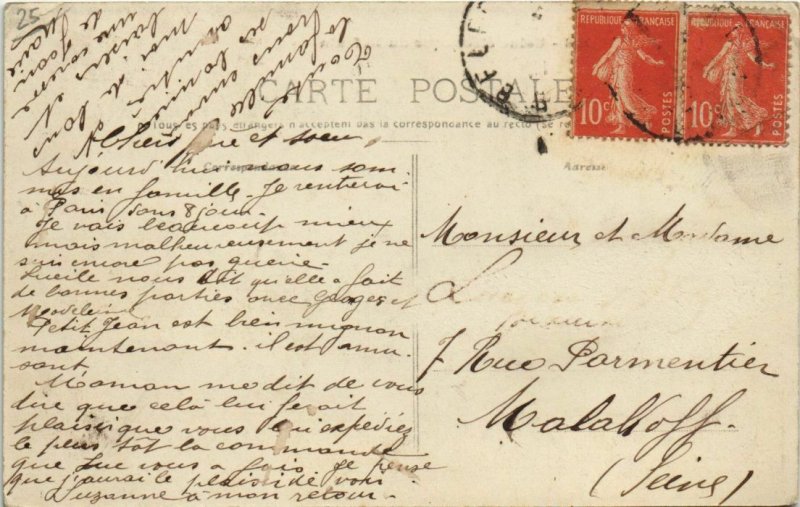 25
CARTE POSTALE
Tous les pays étrangers n'acceptent pas la correspondance au recto (se re
Correspondance
Adresse
REPUBLIQUE FRANÇAISE
10c
POSTES
REPUBLIQUE FRANÇAISE
10c
POSTES
frère et soeur
Aujourd'hui nous som
mes en famille. Je rentrerai
à Paris dans 8 jours.
Je vais beaucoup mieux
mais malheureusement je ne
suis encore pas guerie.
Lucile nous dit qu'elle a fait
de bonnes parties avec Georges et
Madeleine
Petit Jean est bien mignon
maintenant. il est amu
sant.
Maman me dit de vous
dire que celà lui ferait
plaisir que vous lui expédiez
le plus tôt la commande
que Luc vous a fais. Je pense
que j'aurai le plaisir de voir
Suzanne à mon retour.
Toute
la famille
vous envoi
ses
amitiés
moi
baisers de
une soeur
Marie
Monsieur et Madame
L
7 Rue Parmentier
Malakoff.
(Seine)